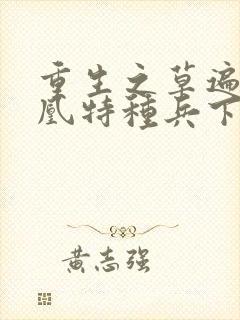 重生之草遍
凰特種兵下
黃志强